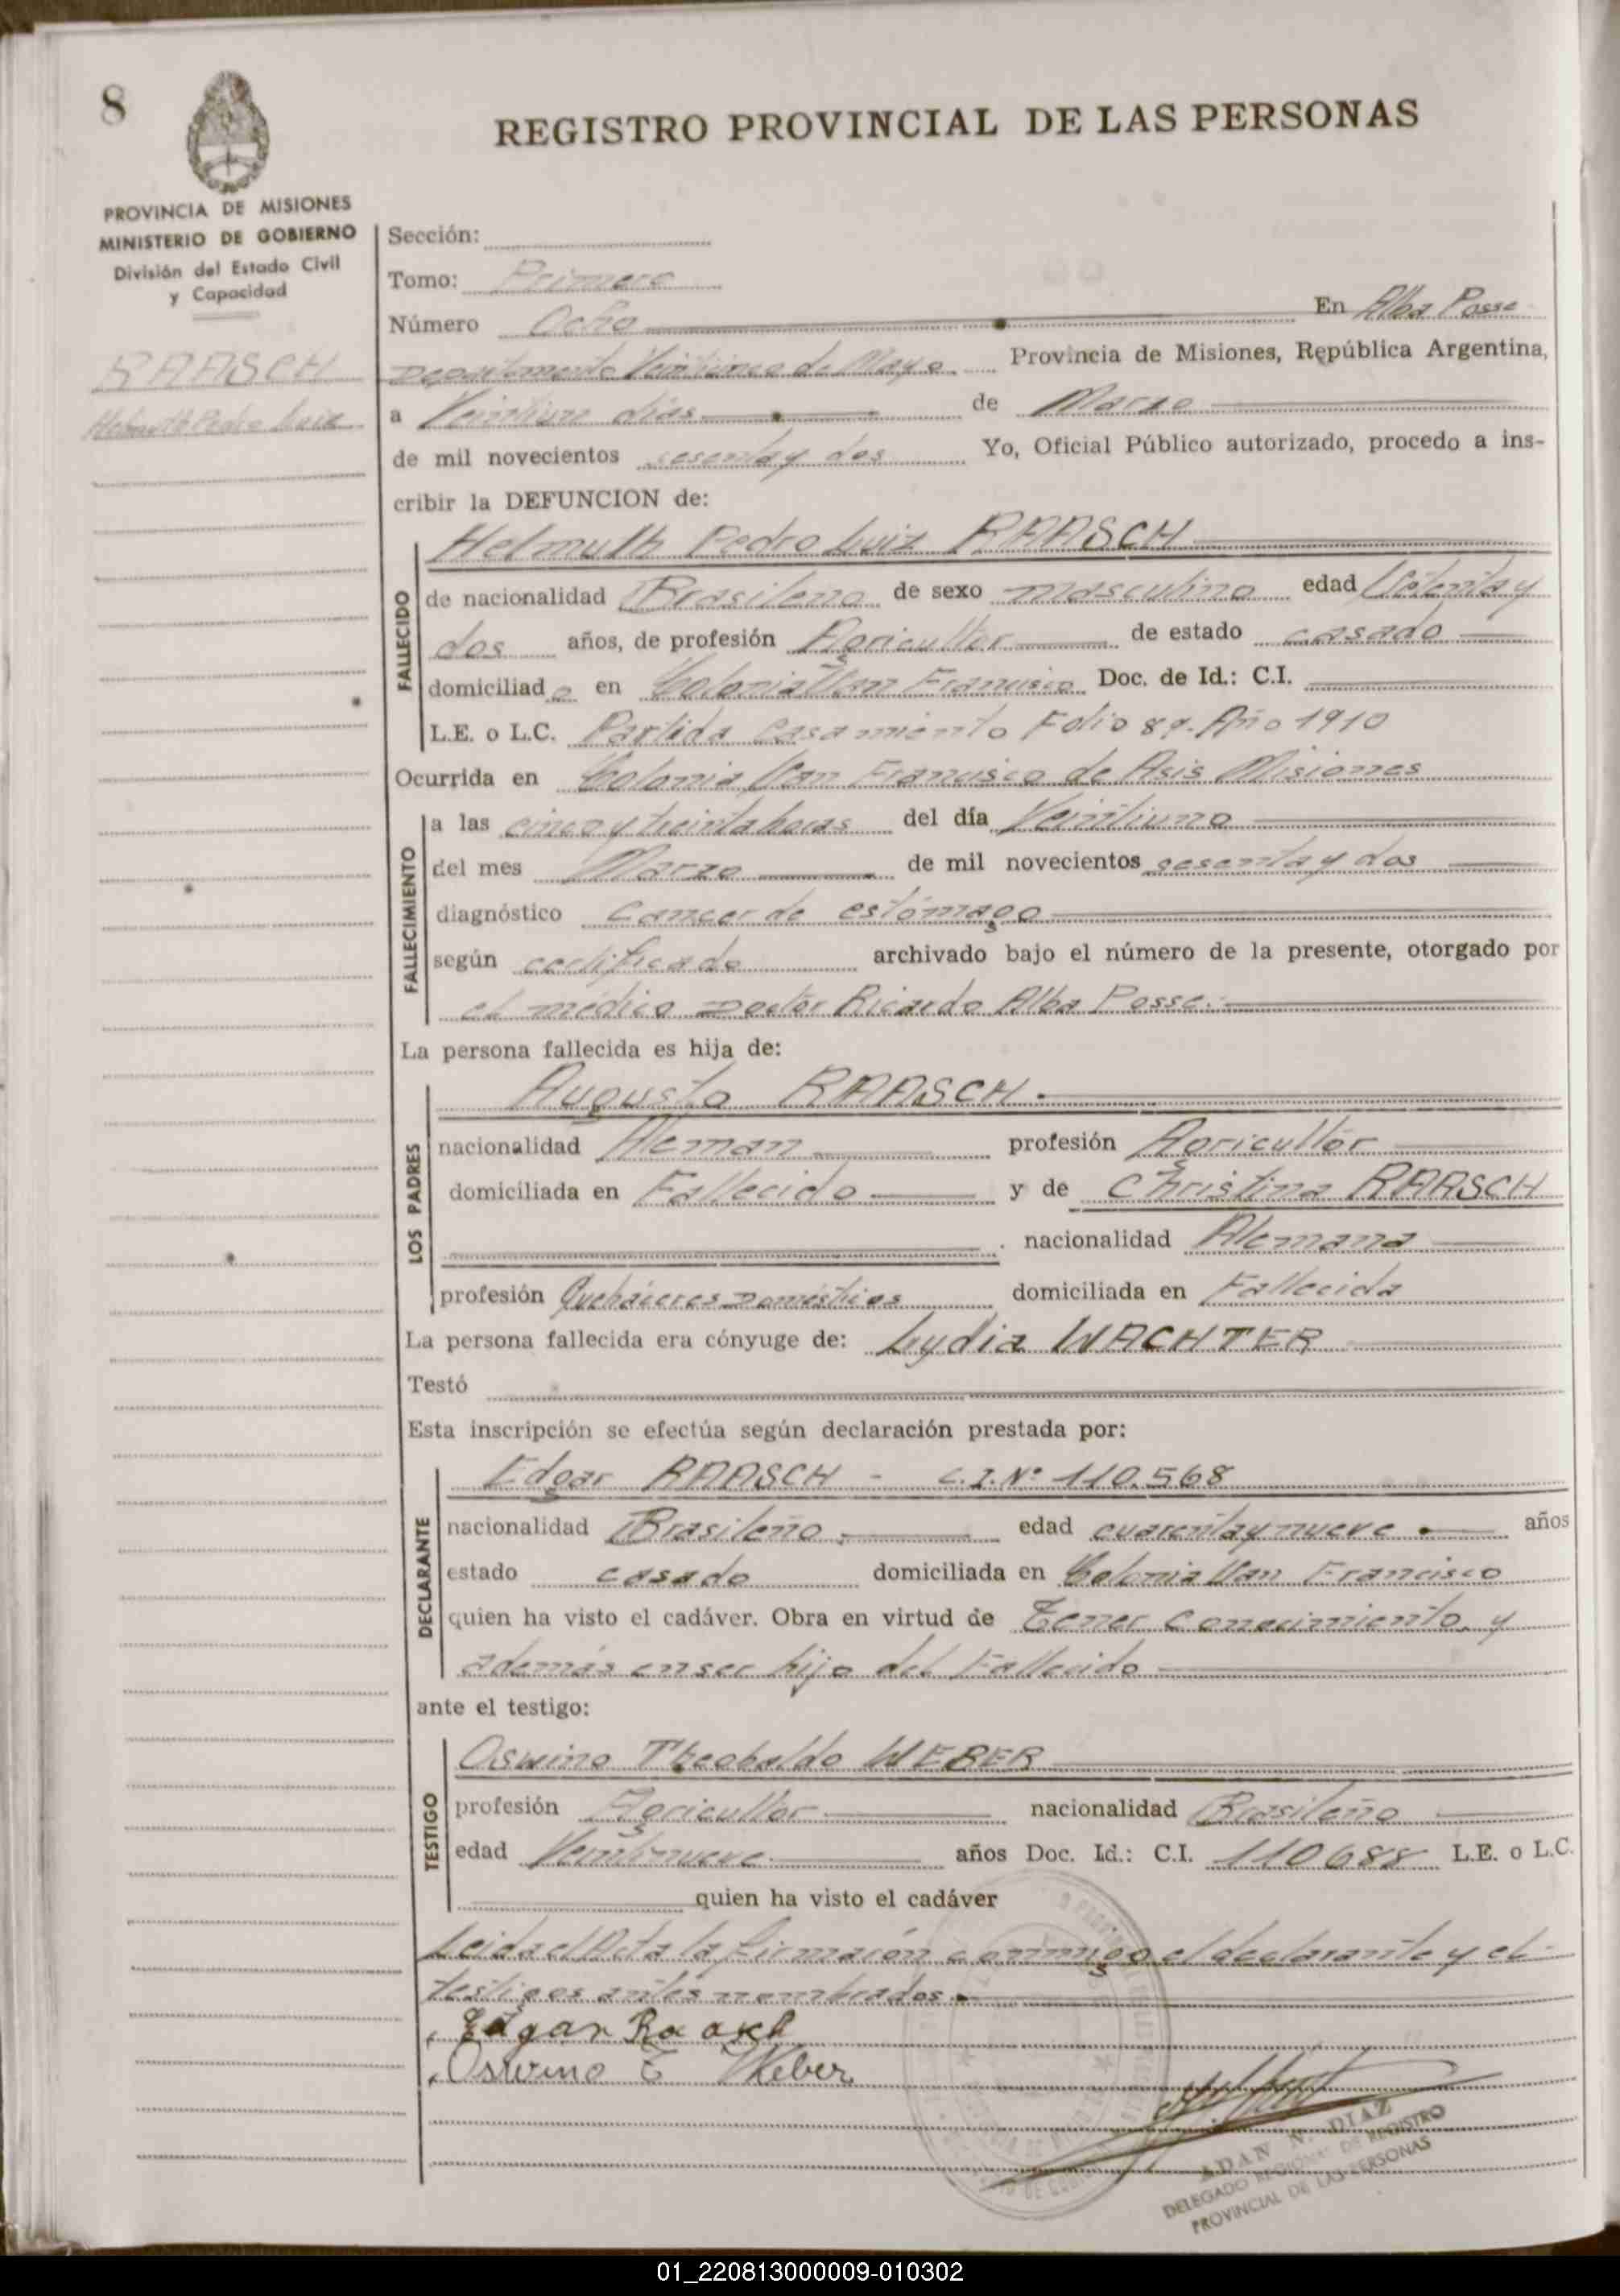 8
REGISTRO PROVINCIAL DE LAS PERSONAS
PROVINCIA DE MISIONES
MINISTERIO DE GOBIERNO
División del Estado Civil
y Capacidad
RAASCH
Helmuth Pedro Luiz
Sección:
Tomo: Primero
Número Ocho En Alba Posse
Departamento Veinticinco de Mayo Provincia de Misiones, República Argentina,
a Veintiun dias de Marzo
de mil novecientos sesenta y dos Yo, Oficial Público autorizado, procedo a ins-
cribir la DEFUNCION de:
Helmuth Pedro Luiz RAASCH
FALLECIDO
de nacionalidad Brasileña de sexo masculino edad Setenta y
dos años, de profesión Agricultor de estado casado
domiciliado en Colonia San Francisco Doc. de Id.: C.I.
L.E. o L.C. Partida Casamiento Folio 89. Año 1910
Ocurrida en Colonia San Francisco de Asis Misiones
FALLECIMIENTO
a las cinco y treinta horas del día Veintiuno
del mes Marzo de mil novecientos sesenta y dos
diagnóstico Cancer de estómago
según certificado archivado bajo el número de la presente, otorgado por
el médico Doctor Ricardo Alba Posse.
La persona fallecida es hija de:
Augusto RAASCH.
LOS PADRES
nacionalidad Aleman profesión Agricultor
domiciliada en Fallecido y de Christina RAASCH
nacionalidad Alemana
profesión Quehaceres Domésticos domiciliada en Fallecida
La persona fallecida era cónyuge de: Lydia WACHTER
Testó
Esta inscripción se efectúa según declaración prestada por:
Edgar RAASCH - C.I.Nº 110.568
DECLARANTE
nacionalidad Brasileño edad cuarenta y nueve años
estado casado domiciliada en Colonia San Francisco
quien ha visto el cadáver. Obra en virtud de Tener conocimiento, y
además en ser hijo del Fallecido
ante el testigo:
Oswino Theobaldo WEBER
TESTIGO
profesión Agricultor nacionalidad Brasileño
edad Veintinueve años Doc. Id.: C.I. 110688 L.E. o L.C.
quien ha visto el cadáver
Leida el Acta la firmaron conmigo el declarante y el
testigos antes nombrados.
Edgar Raasch
Oswino T Weber
ADAN N. DIAZ
DELEGADO REGIONAL DE REGISTRO
PROVINCIAL DE LAS PERSONAS
01_220813000009-010302